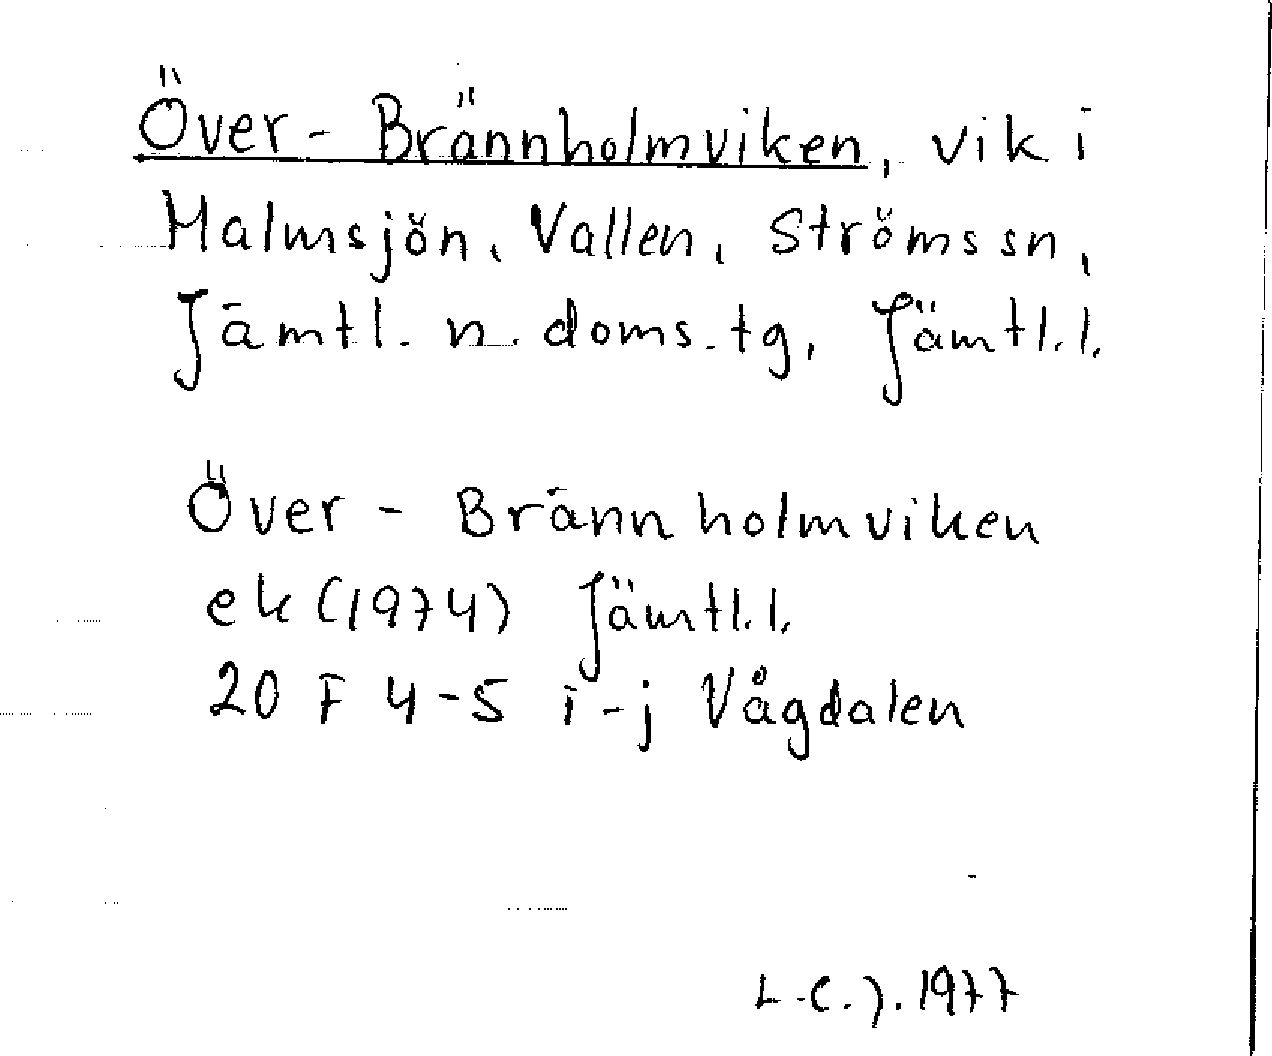 Över - Brännholmviken, vik i
Malmsjön, Vallen, Ströms sn,
Jämtl. n. doms. tg, Jämtl. l.
Över - Brännholmviken
ek (1974) Jämtl. l.
20 F 4-5 i-j Vågdalen
L-C. J. 1977